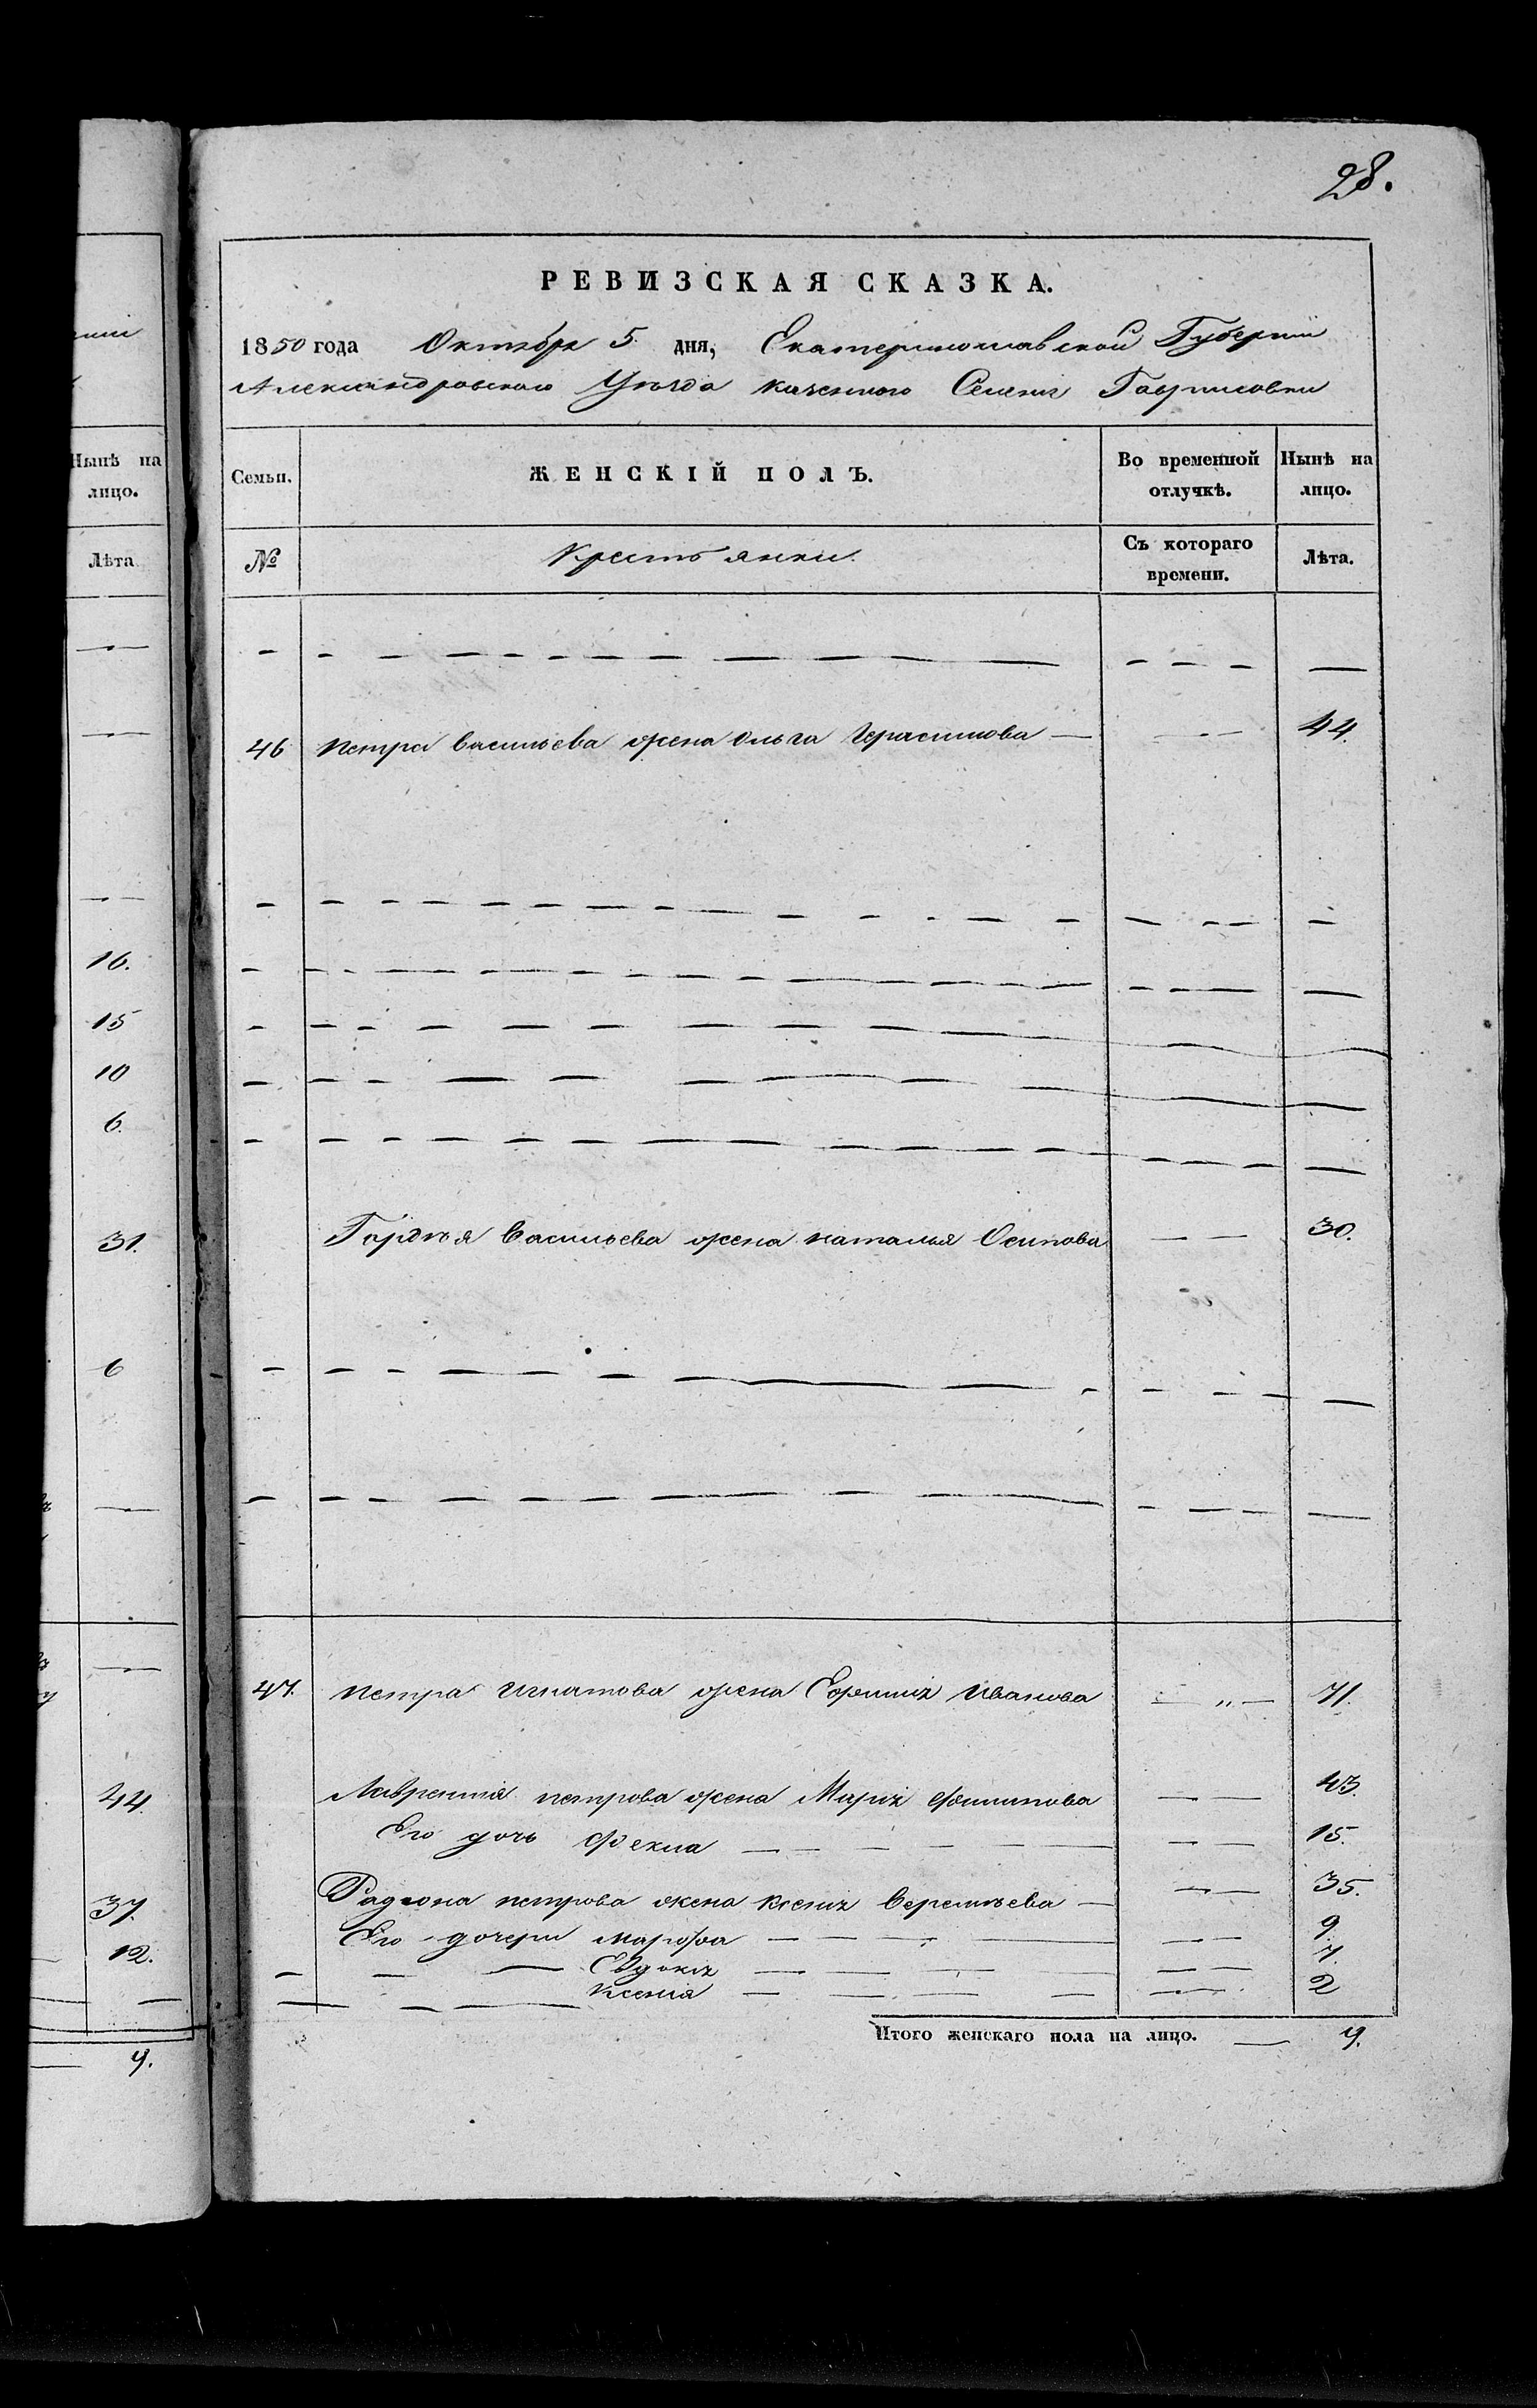 28.
РЕВИЗСКАЯ СКАЗКА.
1850 года Октября 5 дня, Екатеринославской Губернии
Александровского Уѣзда казенного Селения Гавриловки
Нынѣ на лицо.
Лѣта
16.
15
10
6.
31.
6
44.
37.
12.
9.
Семьи.
ЖЕНСКІЙ ПОЛЪ.
Во временной отлучкѣ.
Нынѣ на лицо.
№
Крестьянки.
Съ котораго времени.
Лѣта.
46 Петра Васильева жена Ольга Герасимова — 44.
Гордѣя Васильева жена Наталья Осипова — — 30.
47. Петра Игнатова жена Ефимия Иванова — „ — 71.
Лаврентия Петрова жена Мария Филипова — — 43.
Его дочь Фекла — — 15.
Радиона Петрова жена Ксения Верентьева — 35.
Его дочери Марфа — — 9.
Евдокия — — 7.
Ксения — — 2
Итого женскаго пола на лицо. — 9.